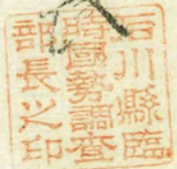 石川縣臨
時國勢調査
部長之印